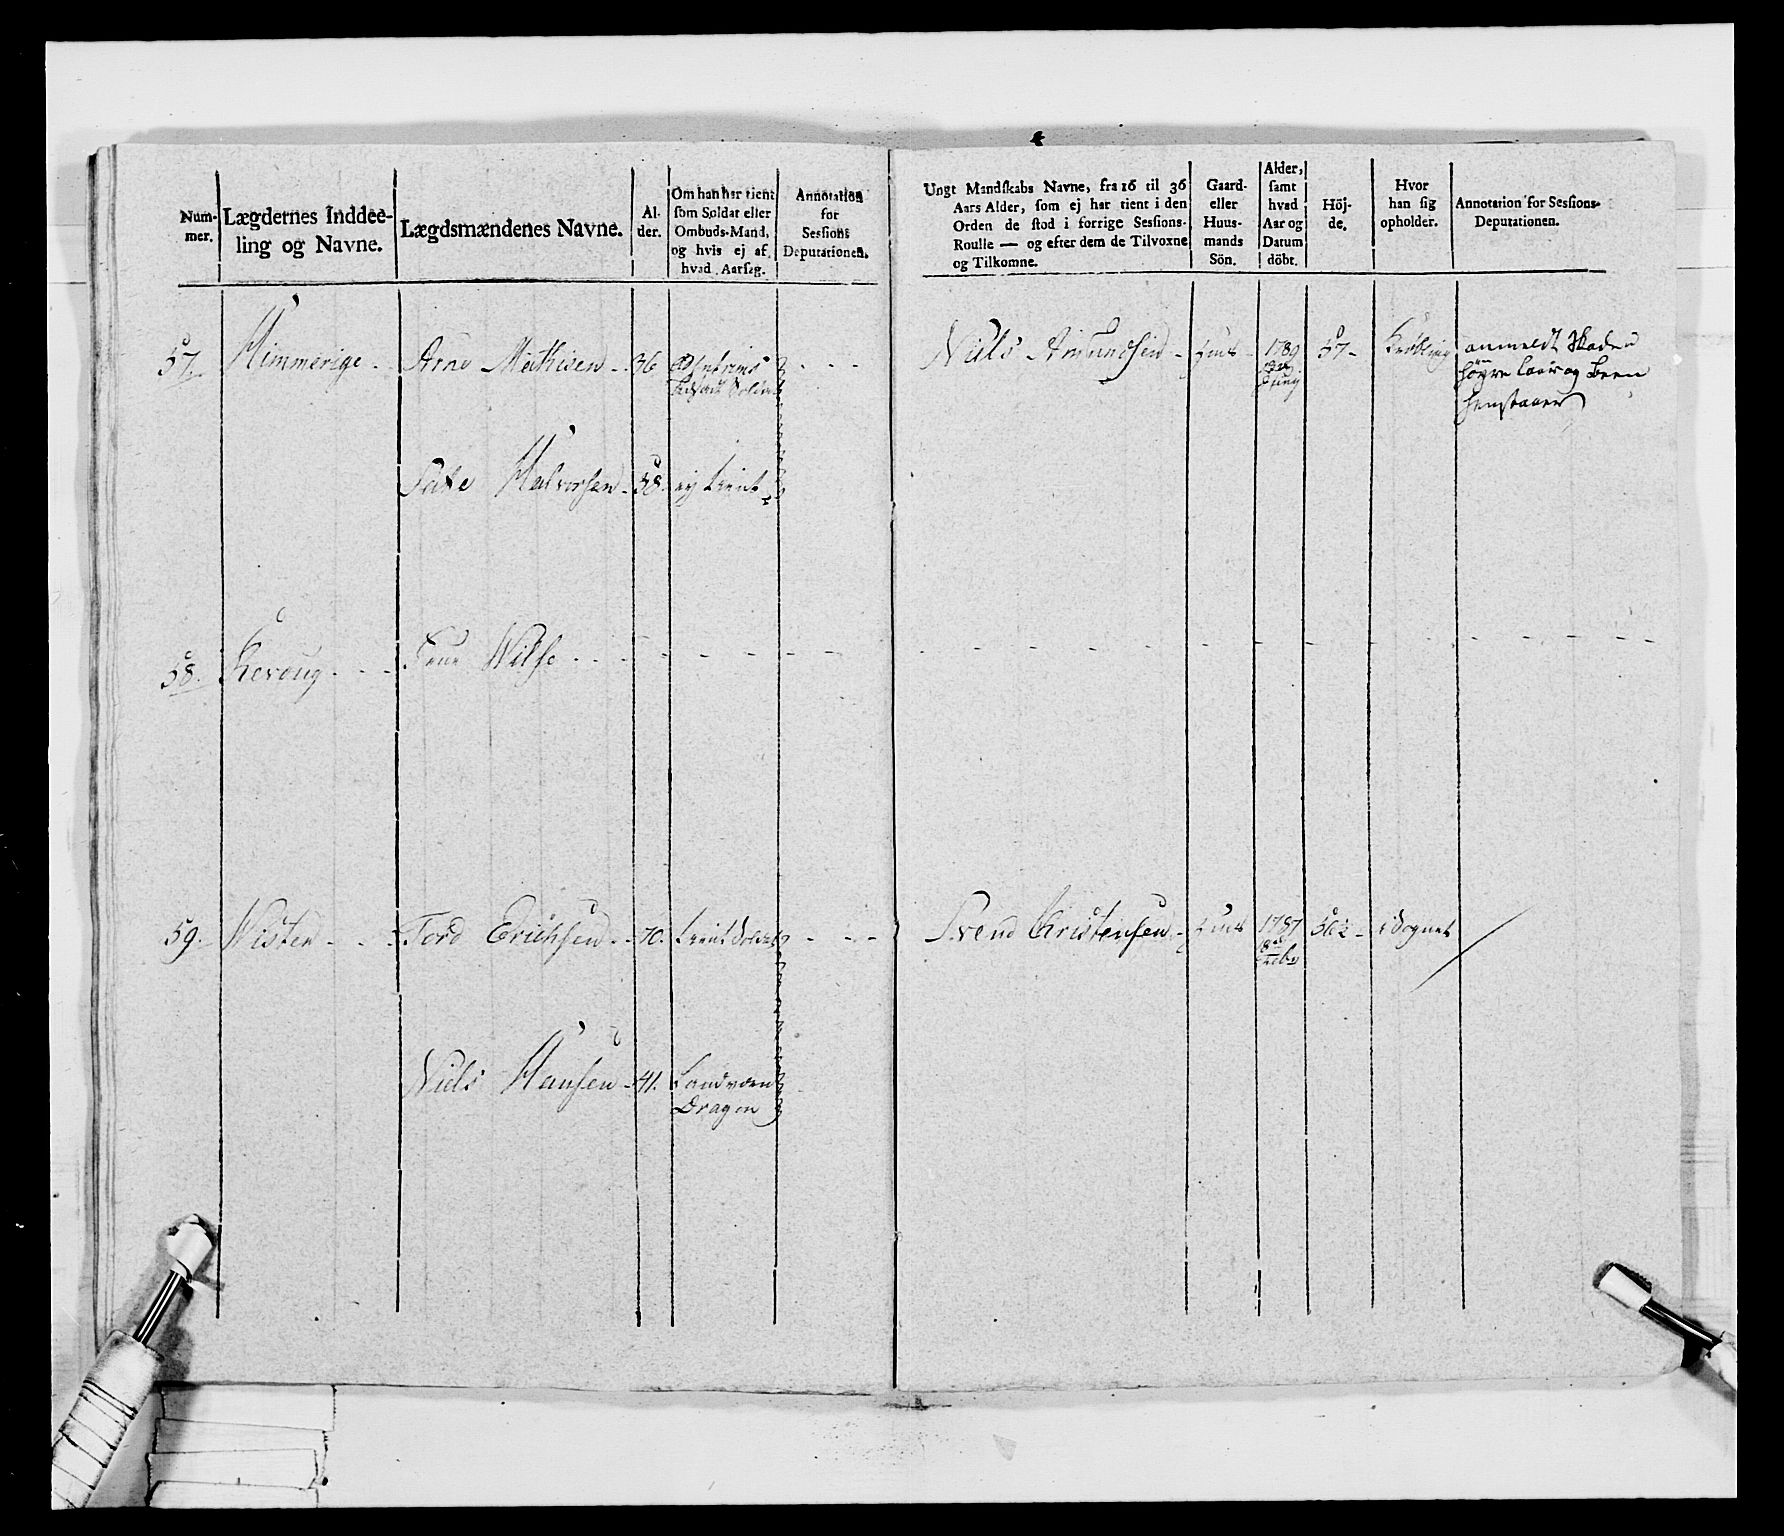 Num-
mer.
Lægdernes Inddee-
ling og Navne.
Lægdsmændenes Navne.
Al-
der.
Om han har tient
som Soldat eller
Ombuds-Mand,
og hvis ej af
hvad Aarsag.
Annotation
for
Sessions
Deputationen.
Ungt Mandskabs Navne, fra 16 til 36
Aars Alder, som ej har tient i den
Orden de stod i forrige Sessions-
Roulle — og efter dem de Tilvoxne
og Tilkomne.
Gaard-
eller
Huus-
mands
Sön.
Alder,
samt
hvad
Aar og
Datum
döbt.
Höj-
de.
Hvor
han sig
opholder.
Annotation for Sessions-
Deputationen.
57. Himmerige Arne Mathisen 36 Soldat
Niels Amundsen 1789 57
anmeldt Skade
höyre Laar og Been
henstaaer
Halvorsen 38. ej tient
58. Wilse
59. Wisten Tord Erichsen 70. tient Soldat
Svend Christensen 1787 i Sognet
Niels Hansen 41. Landværn
Dragon